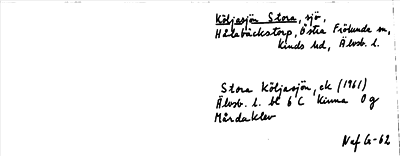 Köljasjön Stora, sjö,
Hålsbäckstorp, Östra Frölunda sn,
Kinds hd, Älvsb. l.
Stora Köljasjön, ek (1961)
Älvsb. l. bl 6 C Kinna 0 g
Mårdaklev
NafG-62